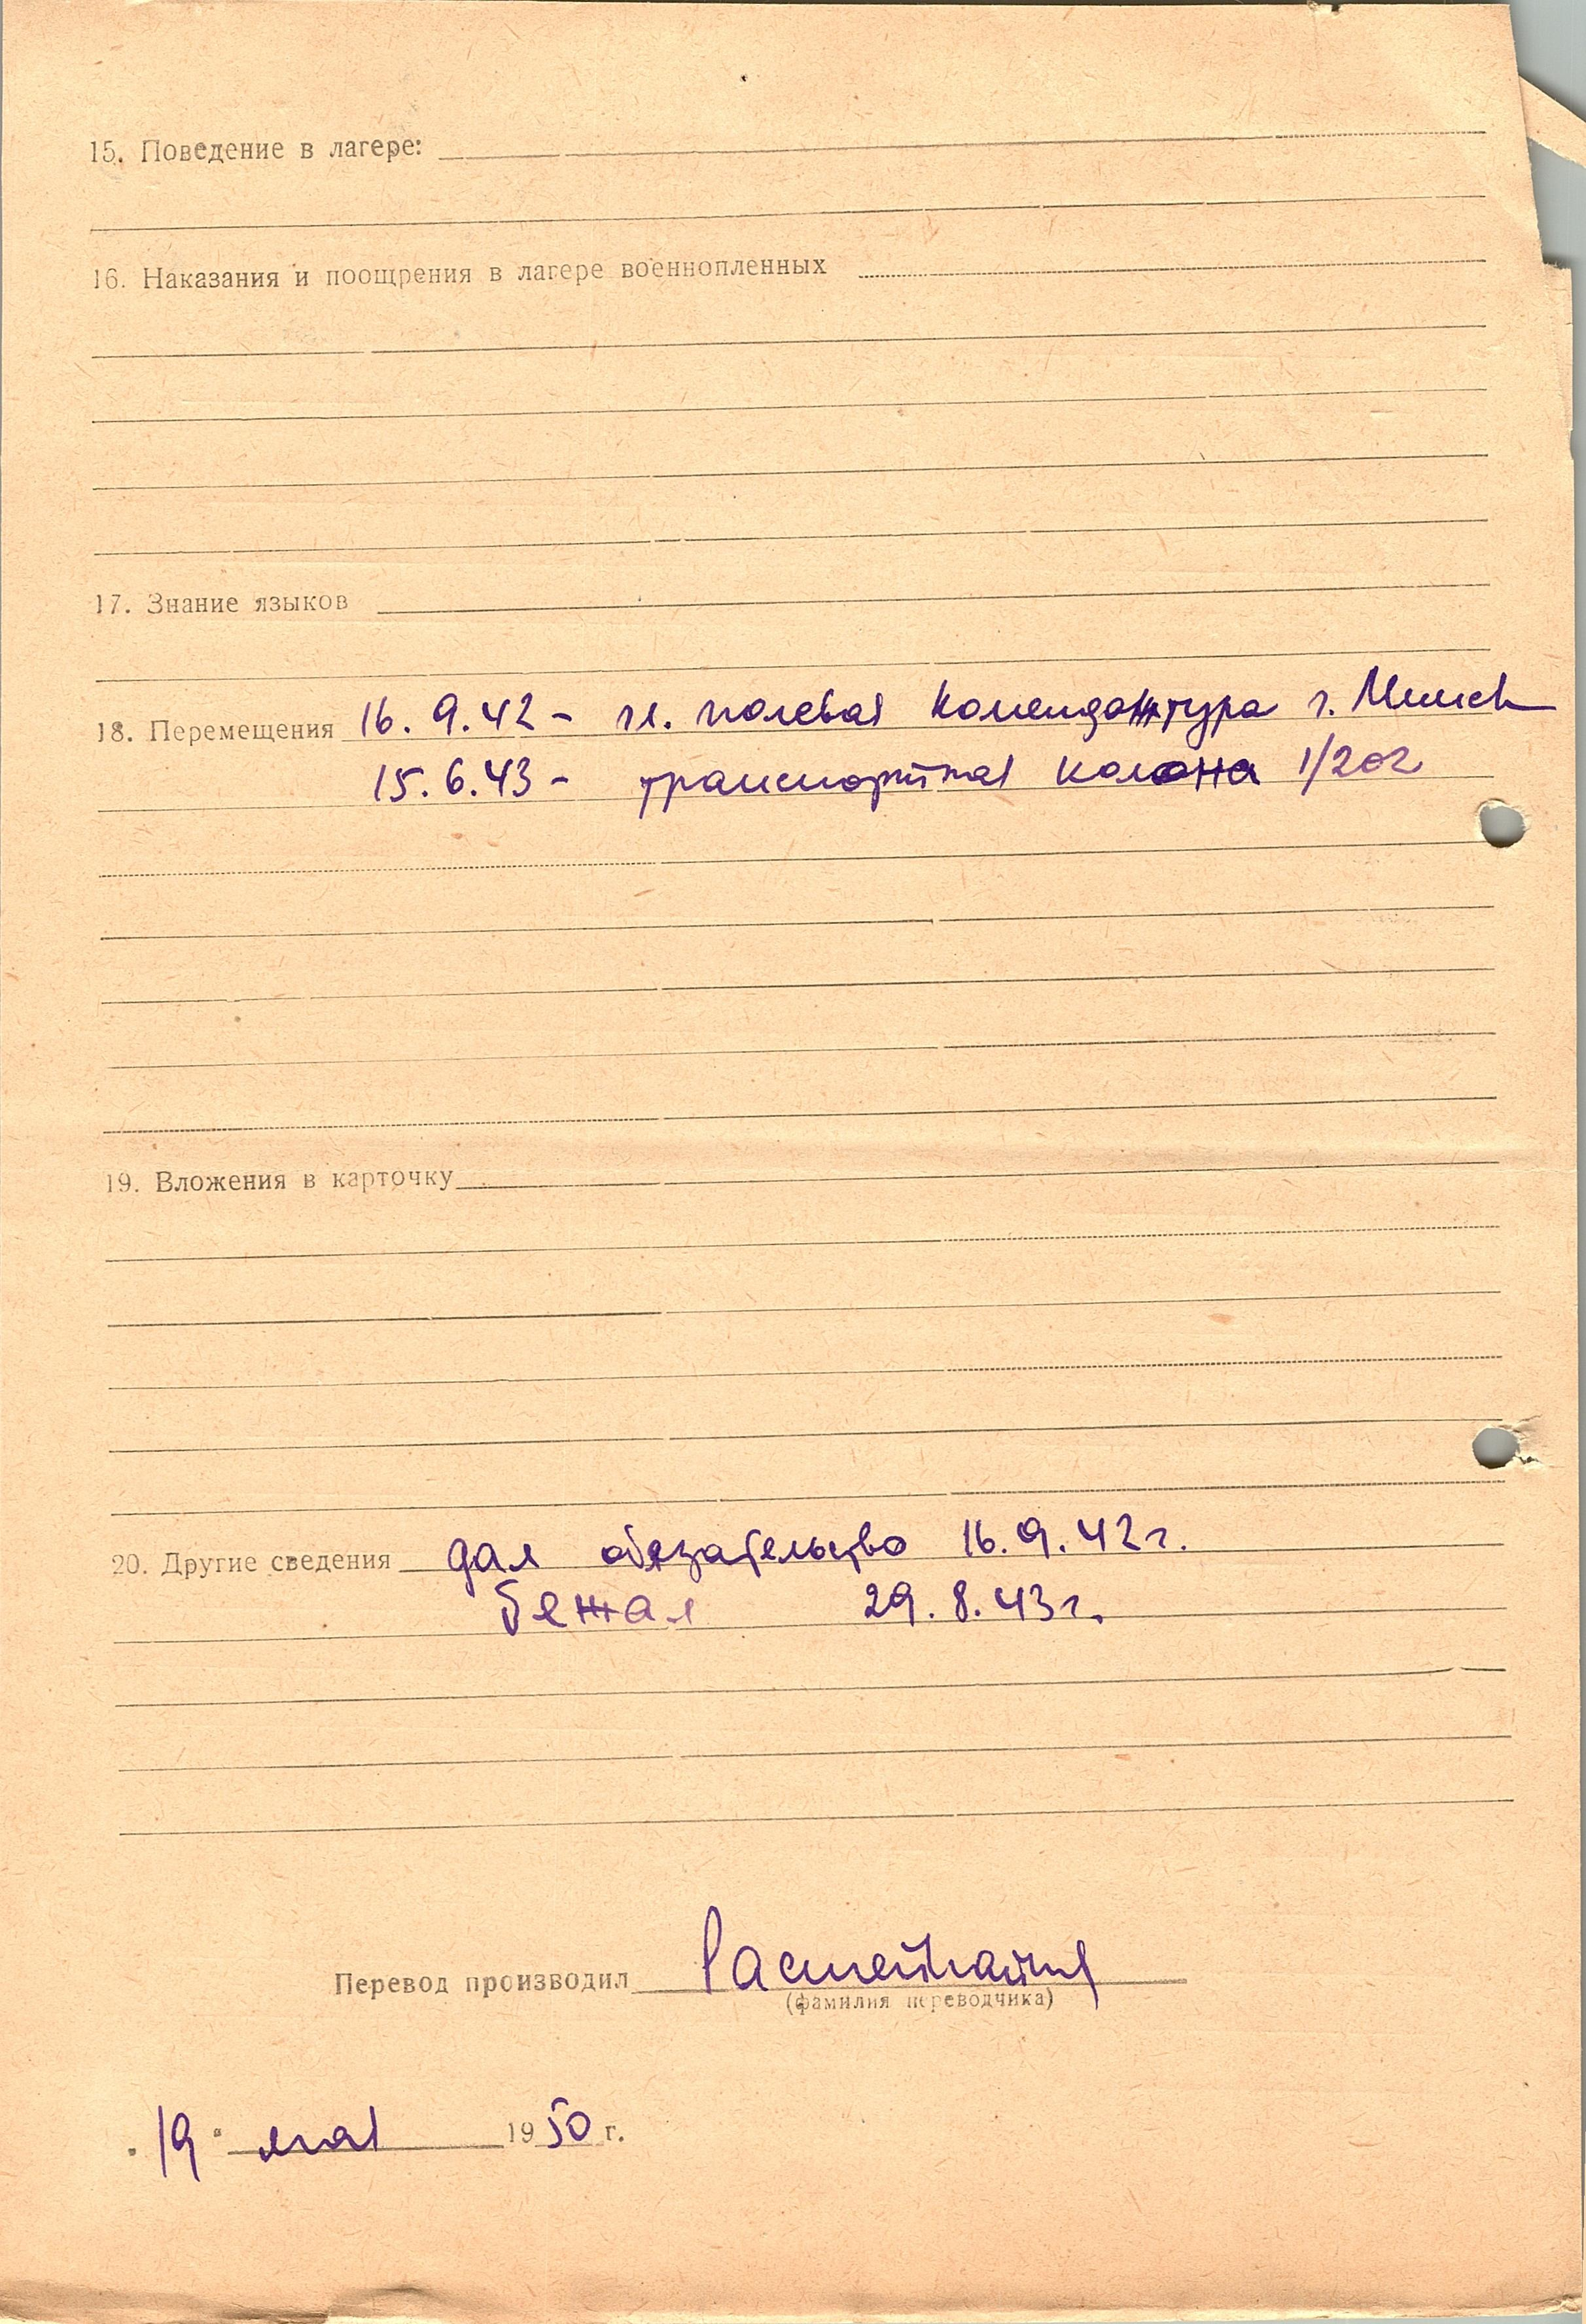 15. Поведение в лагере:
16. Наказания и поощрения в лагере военнопленных
17. Знание языков
18. Перемещения 16. 9. 42 - гл. полевая комендантура г. Минск
15. 6. 43 - транспортная колона 1/202
19. Вложения в карточку
20. Другие сведения дал обязательство 16. 9. 42 г.
бежал 29. 8. 43 г.
Перевод производил
(фамилия переводчика)
"19" мая 1950 г.